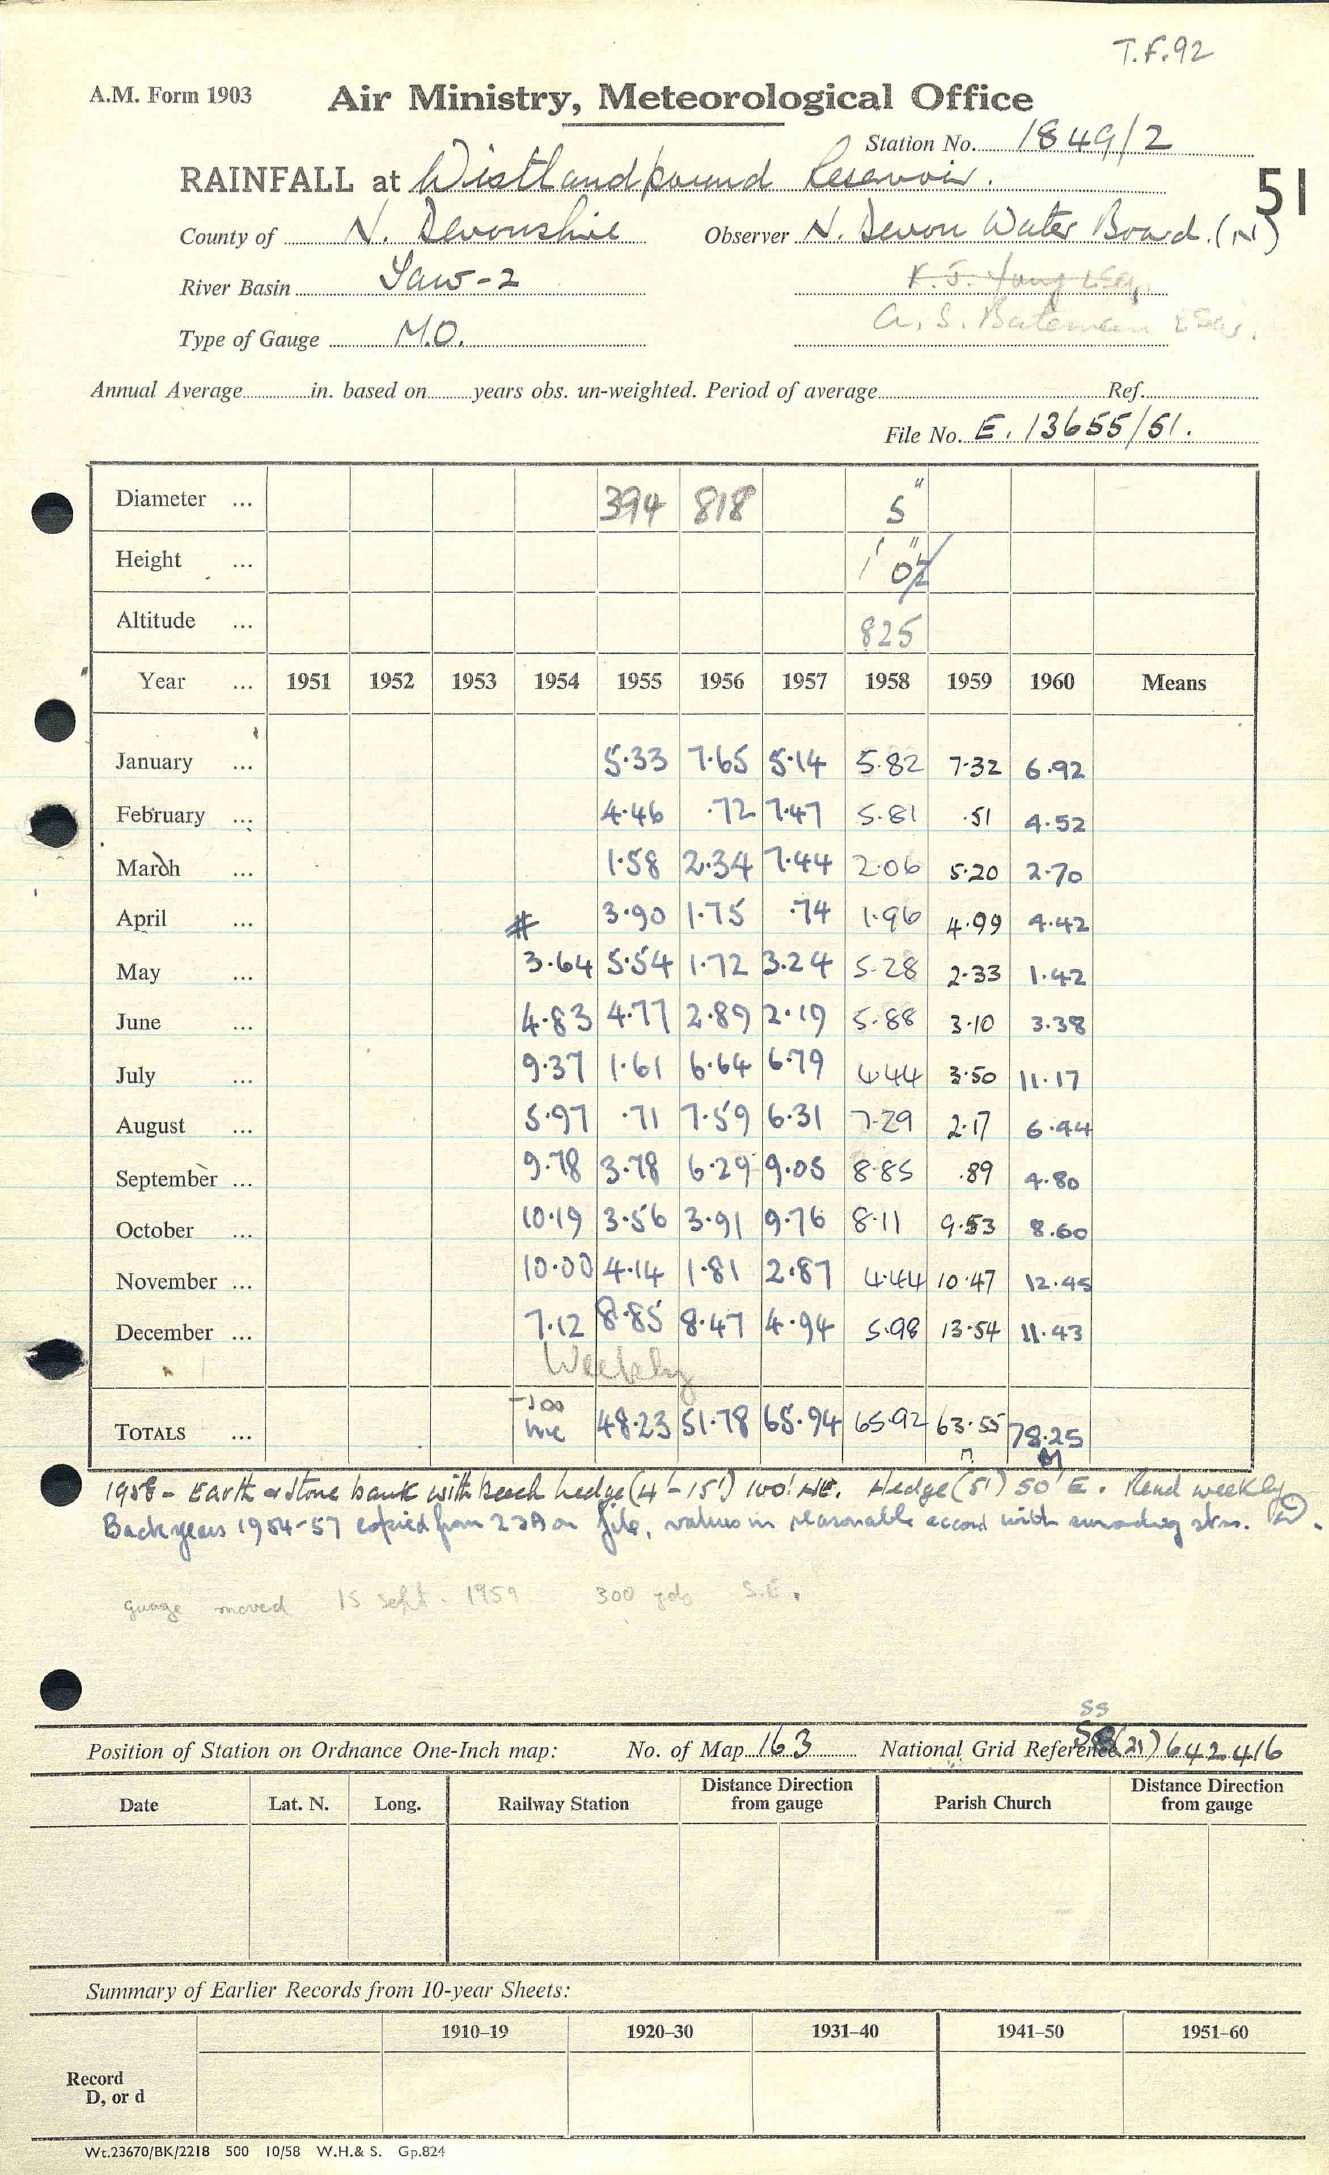 T.F.92
A.M. Form 1903
Air Ministry, Meteorological Office
Station No. 1849/2
RAINFALL at Wistlandpound Reservoir.
51
County of N. Devonshire Observer N. Devon Water Board. (N)
River Basin Taw-2
Type of Gauge M.O. A. S. Bateman Esq.
Annual Average in. based on years obs. un-weighted. Period of average Ref.
File No. E. 13655/51.
Diameter ... 394 818 5"
Height ... 1' 0"
Altitude ... 825
Year ... 1951 1952 1953 1954 1955 1956 1957 1958 1959 1960 Means
January ... 5.33 7.65 5.14 5.82 7.32 6.92
February ... 4.46 .72 7.47 5.81 .51 4.52
March ... 1.58 2.34 7.44 2.06 5.20 2.70
April ... # 3.90 1.75 .74 1.96 4.99 4.42
May ... 3.64 5.54 1.72 3.24 5.28 2.33 1.42
June ... 4.83 4.77 2.89 2.19 5.88 3.10 3.38
July ... 9.37 1.61 6.64 6.79 4.44 3.50 11.17
August ... 5.97 .71 7.59 6.31 7.29 2.17 6.44
September ... 9.78 3.78 6.29 9.05 8.85 .89 4.80
October ... 10.19 3.56 3.91 9.76 8.11 9.53 8.60
November ... 10.00 4.14 1.81 2.87 4.44 10.47 12.45
December ... 7.12 8.85 8.47 4.94 5.98 13.54 11.43
Weekly
TOTALS ... inc 48.23 51.78 65.94 65.92 63.55 78.25
1958 - Earth & stone bank with beech hedge (4'-15') 100' NE. Hedge (5') 50' E. Read weekly
Back years 1954-57 copied from on file, values in reasonable accord with surrounding stns.
guage moved 15 Sept. 1959 300 yds S.E.
SS
Position of Station on Ordnance One-Inch map: No. of Map 163 National Grid Reference (21) 642416
Date Lat. N. Long. Railway Station Distance Direction from gauge Parish Church Distance Direction from gauge
Summary of Earlier Records from 10-year Sheets:
1910–19 1920–30 1931–40 1941–50 1951–60
Record
D, or d
Wt.23670/BK/2218 500 10/58 W.H.& S. Gp.824